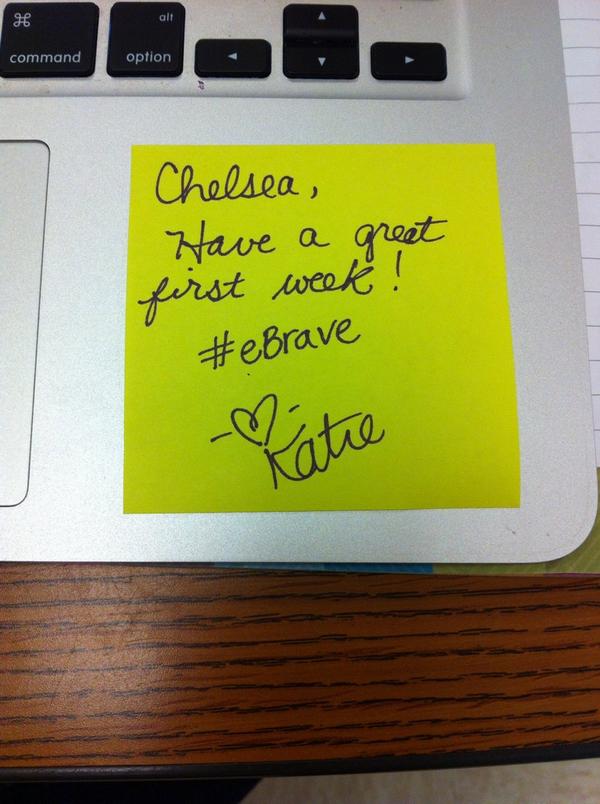 ⌘ alt
command option
◀ ▲ ▼ ▶
Chelsea,
Have a great
first week!
#eBrave
-♡-
Katie